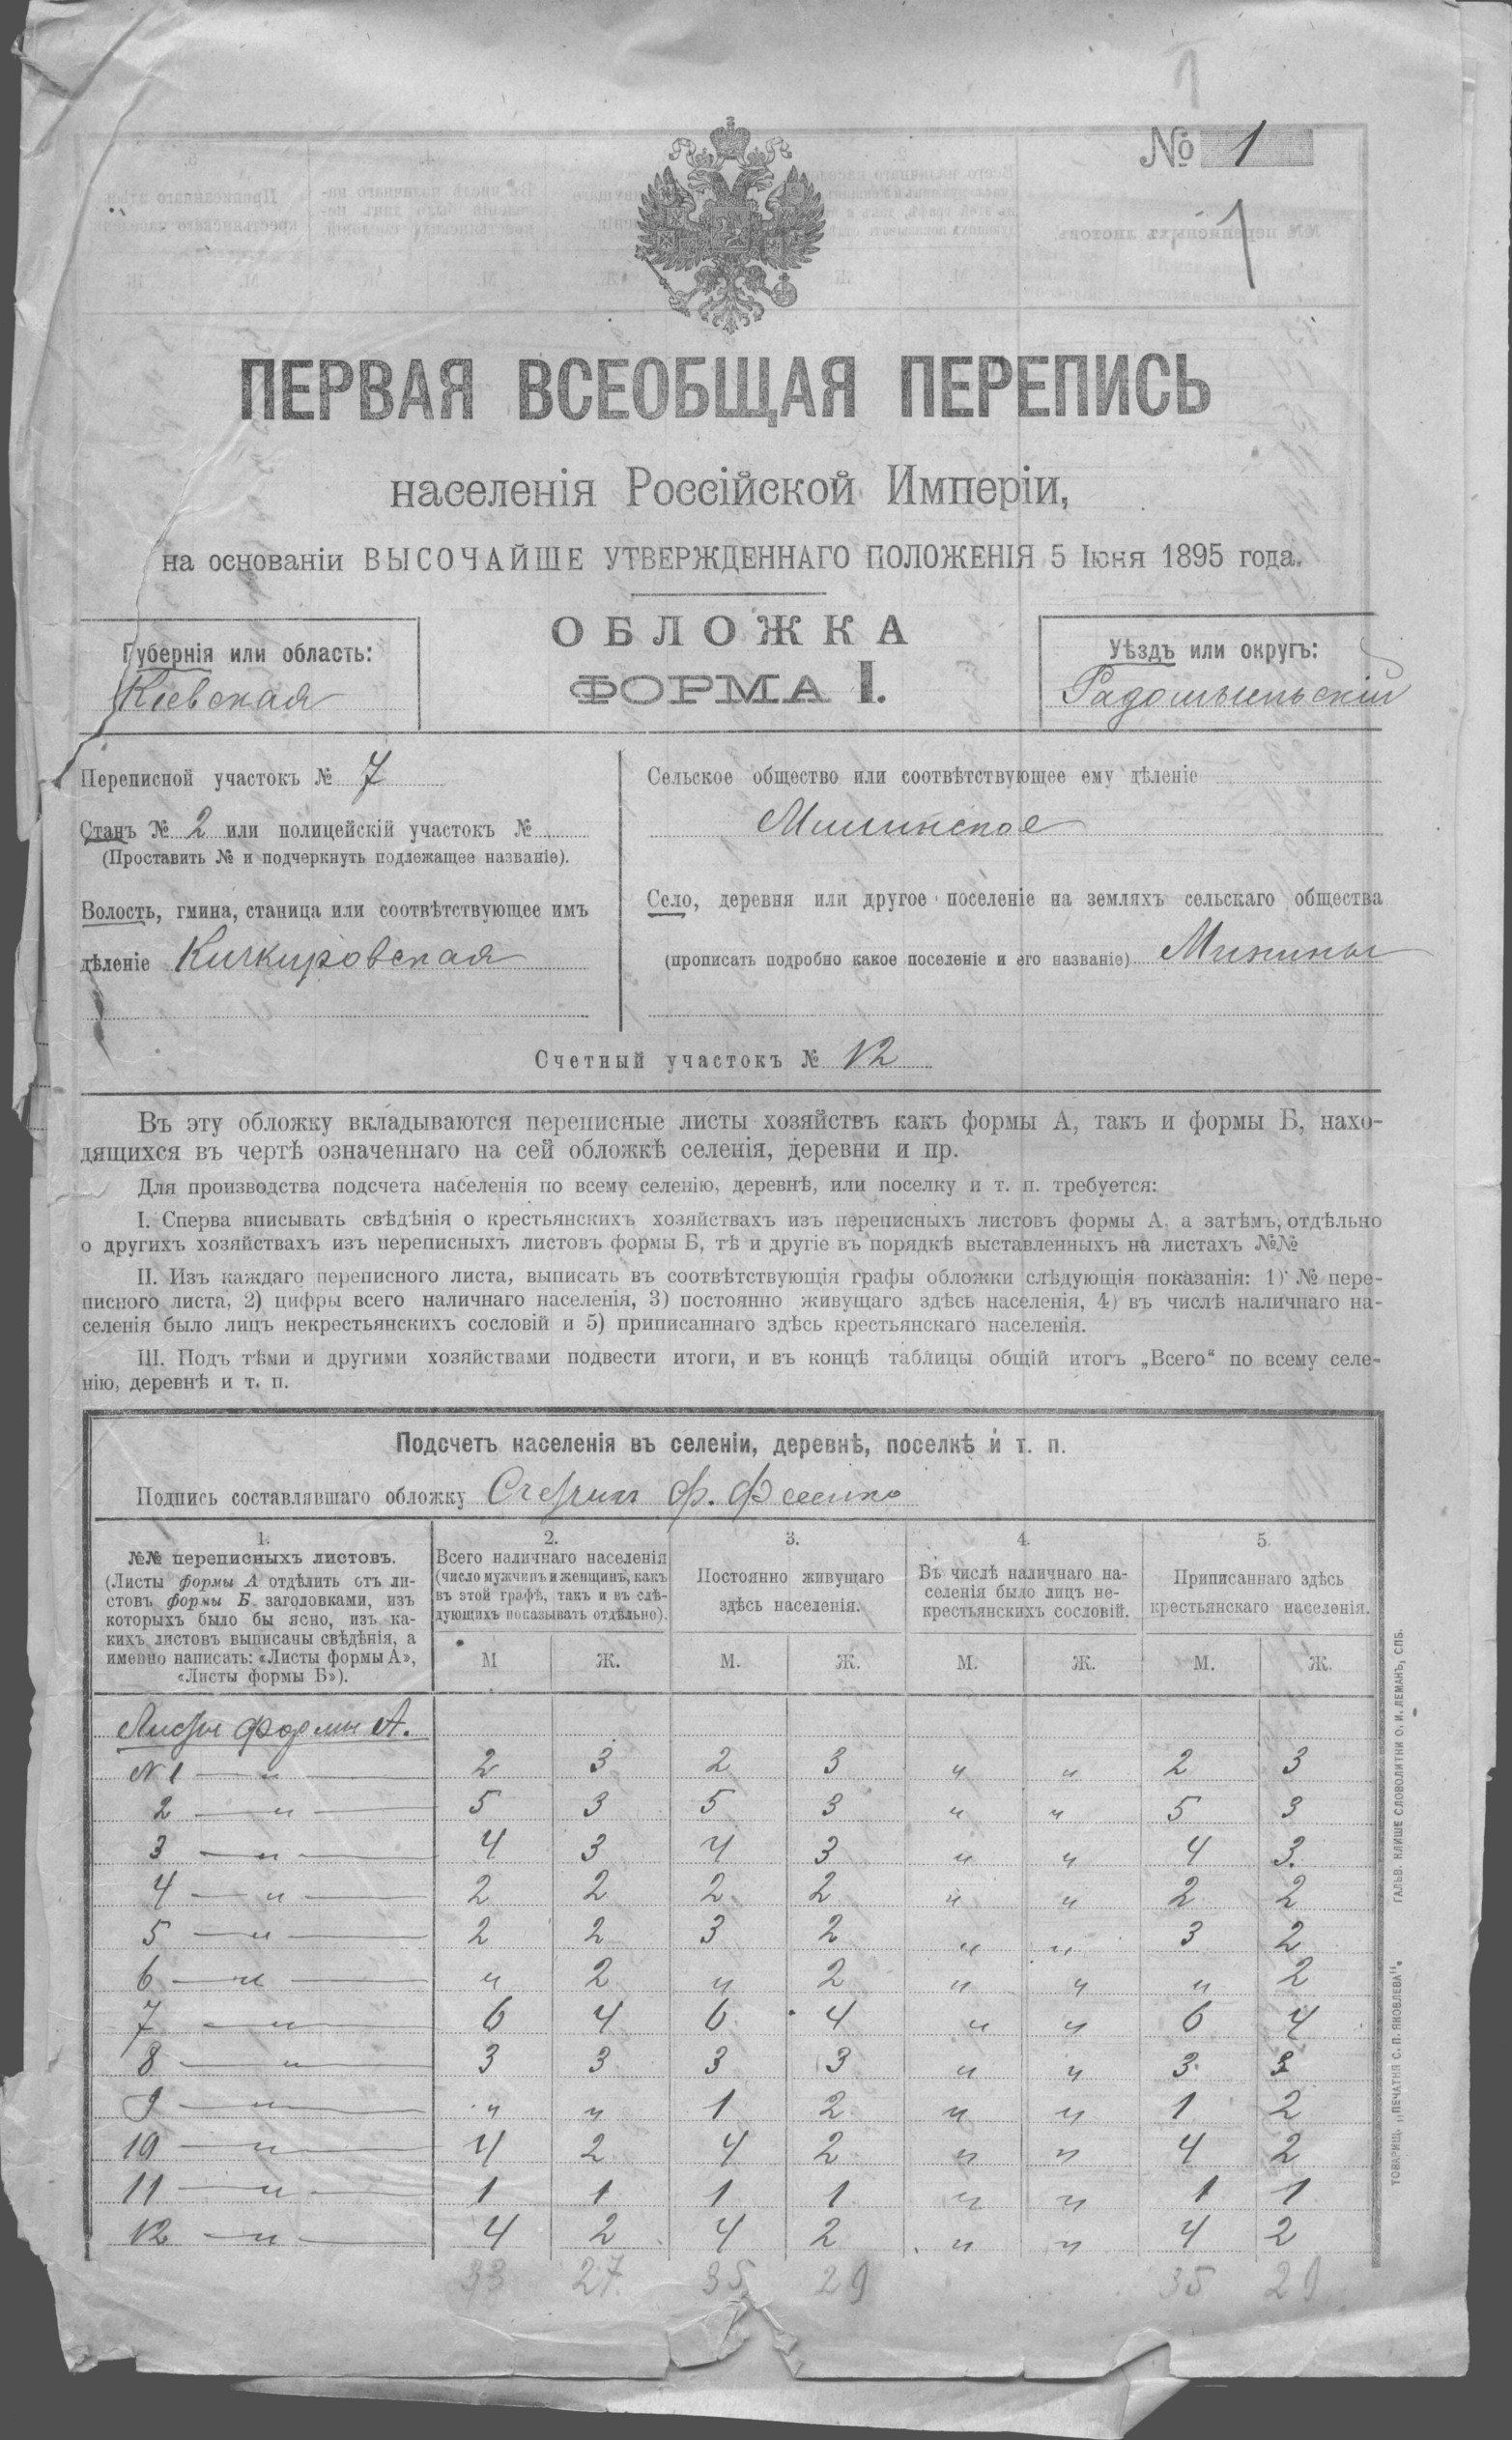 1
№ 1
1
ПЕРВАЯ ВСЕОБЩАЯ ПЕРЕПИСЬ
населенія Россійской Имперіи,
на основаніи ВЫСОЧАЙШЕ УТВЕРЖДЕННАГО ПОЛОЖЕНІЯ 5 Іюня 1895 года.
ОБЛОЖКА
ФОРМА I.
Губернія или область:
Кіевская
Уѣздъ или округъ:
Радомысльскій
Переписной участокъ № 7
Станъ № 2 или полицейскій участокъ №
(Проставить № и подчеркнуть подлежащее названіе).
Волость, гмина, станица или соотвѣтствующее имъ
дѣленіе Кичкировская
Сельское общество или соотвѣтствующее ему дѣленіе
Мининское
Село, деревня или другое поселеніе на земляхъ сельскаго общества
(прописать подробно какое поселеніе и его названіе) Минины
Счетный участокъ № 12
Въ эту обложку вкладываются переписные листы хозяйствъ какъ формы А, такъ и формы Б, нахо-
дящихся въ чертѣ означеннаго на сей обложкѣ селенія, деревни и пр.
Для производства подсчета населенія по всему селенію, деревнѣ, или поселку и т. п. требуется:
I. Сперва вписывать свѣдѣнія о крестьянскихъ хозяйствахъ изъ переписныхъ листовъ формы А, а затѣмъ, отдѣльно
о другихъ хозяйствахъ изъ переписныхъ листовъ формы Б, тѣ и другіе въ порядкѣ выставленныхъ на листахъ №№
II. Изъ каждаго переписного листа, выписать въ соотвѣтствующія графы обложки слѣдующія показанія: 1) № пере-
писного листа, 2) цифры всего наличнаго населенія, 3) постоянно живущаго здѣсь населенія, 4) въ числѣ наличнаго на-
селенія было лицъ некрестьянскихъ сословій и 5) приписаннаго здѣсь крестьянскаго населенія.
III. Подъ тѣми и другими хозяйствами подвести итоги, и въ концѣ таблицы общій итогъ „Всего“ по всему селе-
нію, деревнѣ и т. п.
Подсчетъ населенія въ селеніи, деревнѣ, поселкѣ и т. п.
Подпись составлявшаго обложку Ф.
1.
№№ переписныхъ листовъ.
(Листы формы А отдѣлить отъ ли-
стовъ формы Б заголовками, изъ
которыхъ было бы ясно, изъ ка-
кихъ листовъ выписаны свѣдѣнія, а
именно написать: «Листы формы А»,
«Листы формы Б»).
2.
Всего наличнаго населенія
(число мужчинъ и женщинъ, какъ
въ этой графѣ, такъ и въ слѣ-
дующихъ показывать отдѣльно).
3.
Постоянно живущаго
здѣсь населенія.
4.
Въ числѣ наличнаго на-
селенія было лицъ не-
крестьянскихъ сословій.
5.
Приписаннаго здѣсь
крестьянскаго населенія.
М Ж. М. Ж. М. Ж. М. Ж.
Листы формы А.
№ 1 — „ — 2 3 2 3 „ „ 2 3
2 — „ — 5 3 5 3 „ „ 5 3
3 — „ — 4 3 4 3 „ „ 4 3.
4 — „ — 2 2 2 2 „ „ 2 2
5 — „ — 2 2 3 2 „ „ 3 2
6 — „ — „ 2 „ 2 „ „ „ 2
7 — „ — 6 4 6 4 „ „ 6 4
8 — „ — 3 3 3 3 „ „ 3 3
9 — „ — „ „ 1 2 „ „ 1 2
10 — „ — 4 2 4 2 „ „ 4 2
11 — „ — 1 1 1 1 „ „ 1 1
12 — „ — 4 2 4 2 „ „ 4 2
33 27 35 29 35 29
ТОВАРИЩ. „ПЕЧАТНЯ С. П. ЯКОВЛЕВА“. ГАЛЬВ. КЛИШЕ СЛОВОЛИТНИ О. И. ЛЕМАНЪ, СПБ.